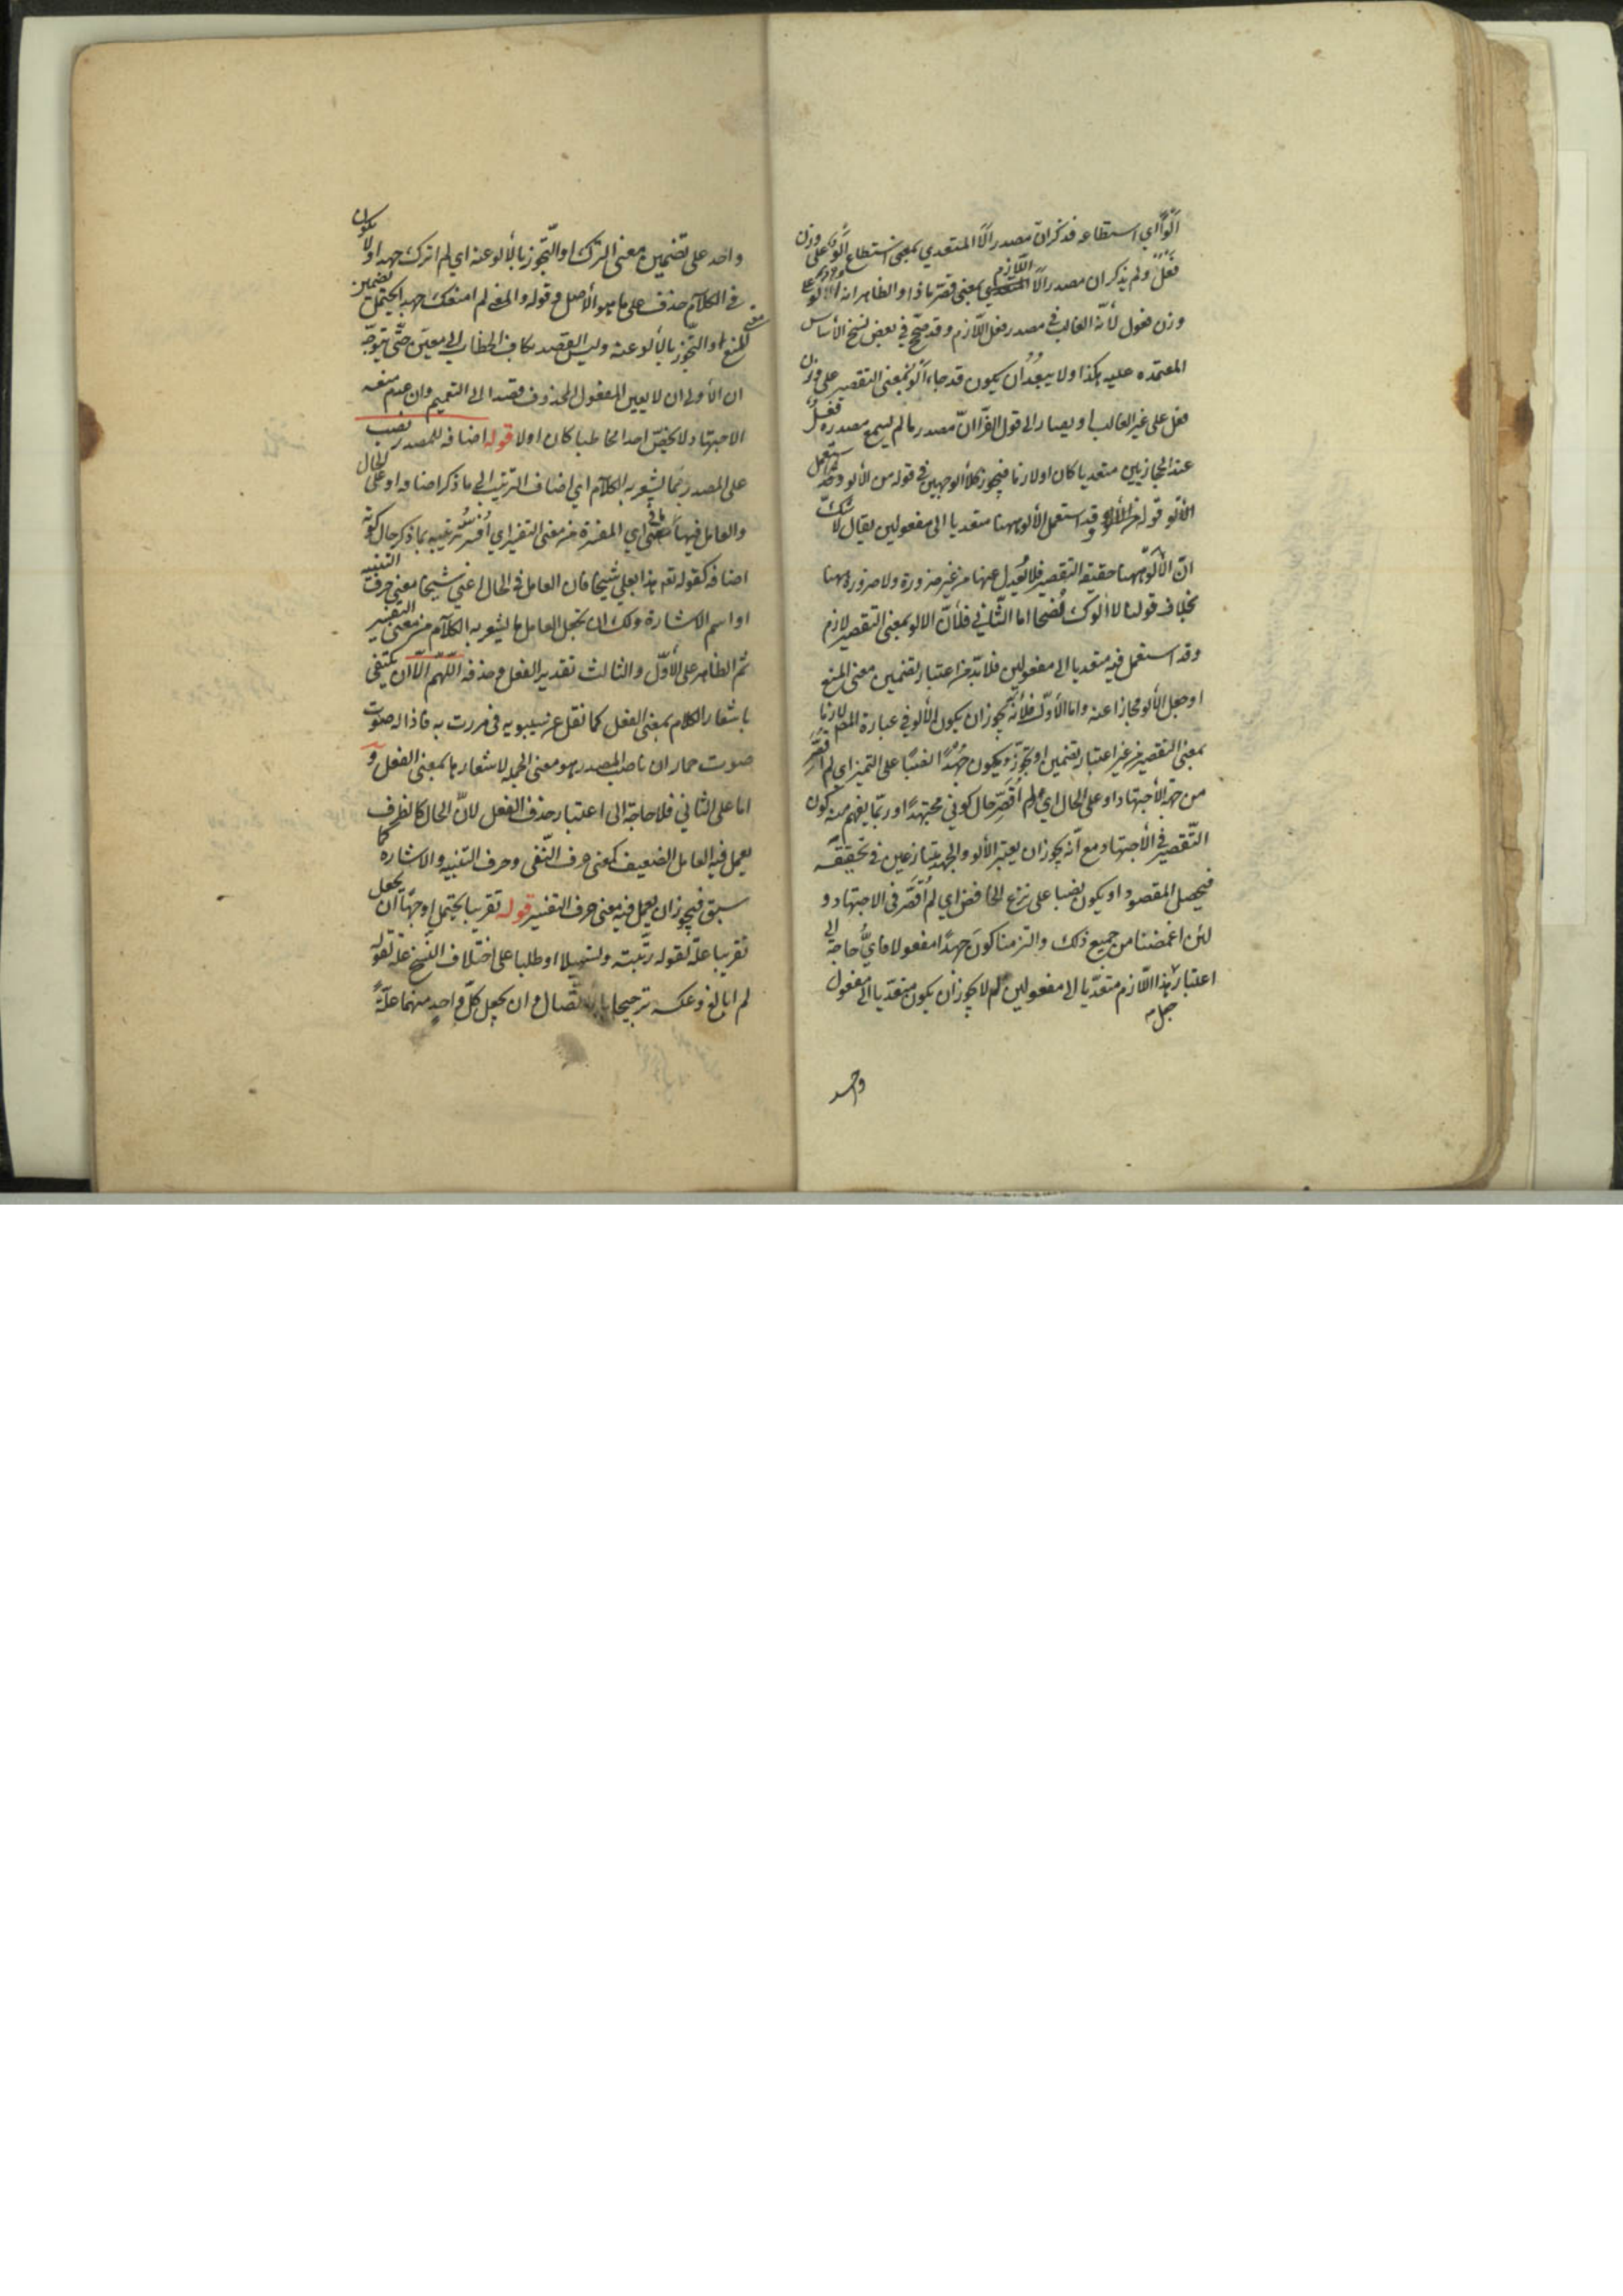 اَلْوًا اي استطاعه فذكر ان مصدر اَلَا المتعدي بمعنى استطاع اَلْو على وزن
فَعْل ولم يذكر ان مصدر اَلَا اللازم بمعنى قصر ماذا والظاهر انه الالُوّ على
وزن فعول لأنه الغالب في مصدر فعل اللازم وقد صحّ في بعض نسخ الأساس
المعتمده عليه هكذا ولا يبعُد ان يكون قد جاء اَلْو بمعنى التقصير على وزن
فعل على غير الغالب او يصار الى قول الفرّا انّ مصدر ما لم يسمع مصدره فَعْل
عند الحجازيين متعديا كان او لازما فيجوز كلا الوجهين في قوله من الألو
الألو قوله وقد استعمل الألو ههنا متعديا الى مفعولين يقال لا شك
انّ الألو ههنا حقيقة التقصير فلا يُعدل عنها من غير ضرورة ولا ضرورة ههنا
بخلاف قولنا لا الوك نُصْحا اما الثّاني فلأنّ الالو بمعنى التقصير لازم
وقد استعمل فيه متعديا الى مفعولين فلا بدّ من اعتبار تضمين معنى المنع
او جعل الألو مجازا عنه واما الأوّل فلأنّه يجوز ان يكون الألو في عبارة المص لازما
بمعنى التقصير من غير اعتبار تضمين او تجوّز ويكون جُهْدًا نصبًا على التميز اي لم اُقَصِّر
من جهة الأجتهاد او على الحال اي لم اُقَصِّر حال كوني مجتهدًا وربّما يفهم منه كون
التّقصير في الأجتهاد مع انّه يجوز ان يعتبر الألو والجهد متنازعين في تحقيقه
فيحصل المقصود او يكون نصبا على نزع الخافض اي لم اُقَصِّر في الاجتهاد و
لئن اغمضنا من جميع ذلك والتزمنا كون جهدًا مفعولا فايُّ حاجة الى
اعتبار هذا اللّازم متعدّيا الى مفعولين لم لا يجوز ان يكون متعدّيا الى مفعول
واحد
واحد على تضمين معنى الترك او التّجوز بالألو عنه اي لم اترك جهدا ولا يكون
في الكلام حذف على ما هو الأصل وقوله والمعنى لم امنعك جهدا يحتمل تضمين
معنى المنع والتّجوّز بالألو عنه وليس القصد بكاف الخطاب الى معيّن حتّى يتوجّه
ان الأولى ان لا يعين المفعول المحذوف قصدا الى التعميم وان عدم منعه
الاجتهاد لا يخصّ احدا مخاطبا كان اولا قوله اضافه للمصدر نصب
على المصدر بما يشعر به الكلام اي اضاف الترتيب الى ما ذكر اضافه او على الحال
والعامل فيها معنى اي المفسّرة من معنى التفسير اي اُفسّر ترتيبه بما ذكر حال كونه
اضافه كقوله تعه هذا بعلي شيخا فان العامل في الحال اعني شيخا معنى حرف التنبيه
او اسم الاشارة ولك ان تجعل العامل ما يشعر به الكلام من معنى التفسير
ثم الظاهر على الأوّل والثالث تقدير الفعل وحذفه اللّهم الّا ان يكتفى
باشعار الكلام بمعنى الفعل كما نقل عن سيبويه في مررت به فاذا له صوت
صوت حمار ان ناصب المصدر هو معنى الجملة لاشعارها بمعنى الفعل و
اما على الثاني فلا حاجة الى اعتبار حذف الفعل لانّ الحال كالظرف
يعمل فيه العامل الضعيف كمعنى حرف النّفى وحرف التنبيه والاشاره كما
سبق فيجوز ان يعمل فيه معنى حرف التفسير قوله تقريبا يحتمل اوجهًا ان يجعل
تقريبا علّة لقوله رتّبته وتسهيلا او طلبا على اختلاف النّسخ علّة لقوله
لم ابالغ وعكسه ترجيحا بالاتّصال وان يجعل كلّ واحد منهما علّةً